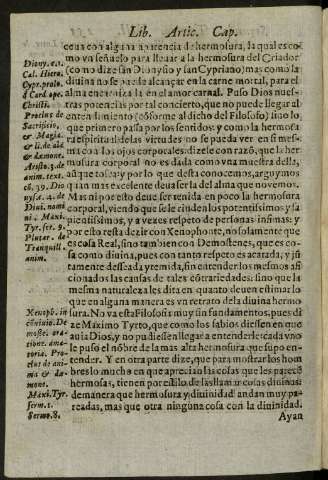 Lib. Artic. Cap.
ceua con alguna aparencia de hermosura, la qual es co
mo vn señuelo para lleuar a la hermosura del Criador
(como dize san Dionysio y san Cypriano) mas como la
diuina no se puede alcançar en la carne mortal, para el
alma encarniza la en el amor carnal. Puso Dios nues-
tras potencias por tal concierto, que no puede llegar al
entendimiento (cõforme al dicho del Filosofo) sino lo
que primero passa por los sentidos: y como la hermosa
ra espiritual de las virtudes no se pueda ver en si mes-
ma con los ojos corporales: dizele con razõ, que la her
mosura corporal no es dada como vna muestra della,
aũque tosca: y por lo que desta conocemos, arguymos
quan mas excelente deua ser la del alma que nouemos.
Mas ni por esto deue ser tenida en poco la hermosura
corporal, viendo que se le rinden los potentissimos y sa
pientissimos, y a vezes respeto de personas infimas: y
por esto resta dezir con Xenophonte, no solamente que
es cosa Real, sino tambien con Demostenes, que es co-
sa como diuina, pues con tanto respeto es acatada, y jũ
tamente desseada y temida, sin entender los mesmos afi
cionados las causas de tales cõtrariedades: sino que la
mesma naturaleza les dita en quanto deuen estimar lo
que en alguna manera es vn retrato de la diuina hermo
sura. No va esta Filosofia muy sin fundamentos, pues di
ze Máximo Tyrio, que como los sabios diessen en que
auia Dios, y no pudiessen llegar a entender le: cada vno
le puso el nõbre de la mas alta hermosura que supo en-
tender. Y en otra parte dize, que para mostrar los hom
bres lo mucho en que aprecian las cosas que les parecẽ
hermosas, tienen por estilo de las llamar cosas diuinas:
de manera que hermosura y diuinidad andan muy pa-
readas, mas que otra ninguna cosa con la diuinidad.
Ayan
Diony. c.2.
Cal. Hiera.
Cypr. prolo.
d Card. ope.
Christi.
Proclus de
Sacrificio,
& Magia.
& li. de aĩa
& dæmone.
Aristo. 3. de
anim. text.
c. 39. Dio
nysi. 4. de
Diui. nomi
ni. Maxi.
Tyr. ser. 9.
Plutar. de
Tranquill.
anim.
Xenoph. in
cõuiuio. De
moste. ora-
tione. ama-
toria. Pro-
clus de ani-
ma & dæ-
mone.
Maxi. Tyr.
serm. 1.
Sermo. 8.